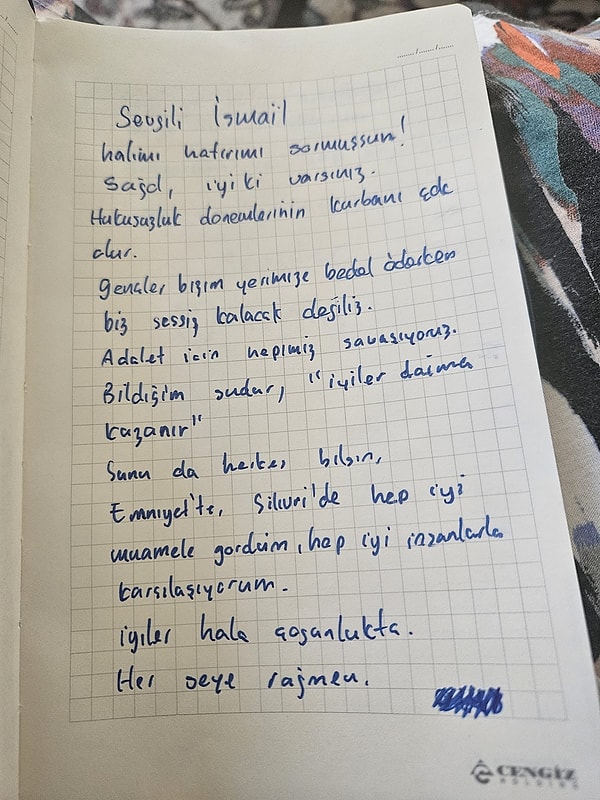 ....../....../......
Sevgili İsmail
halimi hatırımı sormuşsun!
Sağol, iyi ki varsınız.
Hukusuzluk donemlerinin kurbanı çok
olur.
gençler bizim yerimize bedel öderken
biz sessiz kalacak değiliz.
Adalet icin hepimiz savasıyoruz.
Bildiğim sudur, "iyiler daima
kazanır"
Sunu da herkes bilsin,
Emniyet'te, Silivri'de hep iyi
muamele gordum, hep iyi insanlarla
karsılaşıyorum.
iyiler hala çoğunlukta.
Her seye rağmen.
CENGİZ
HOLDING